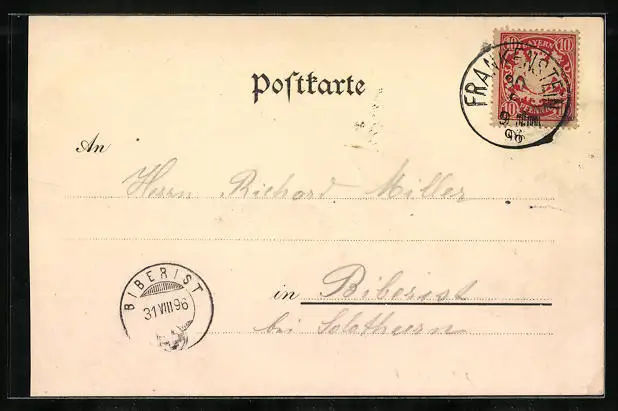 BAYERN
10 10
10
PFENNIG
FRANKENSTEIN
96
Postkarte
An
Herrn Richard Miller
in Biberist
bei Solothurn
BIBERIST
31 VIII 96